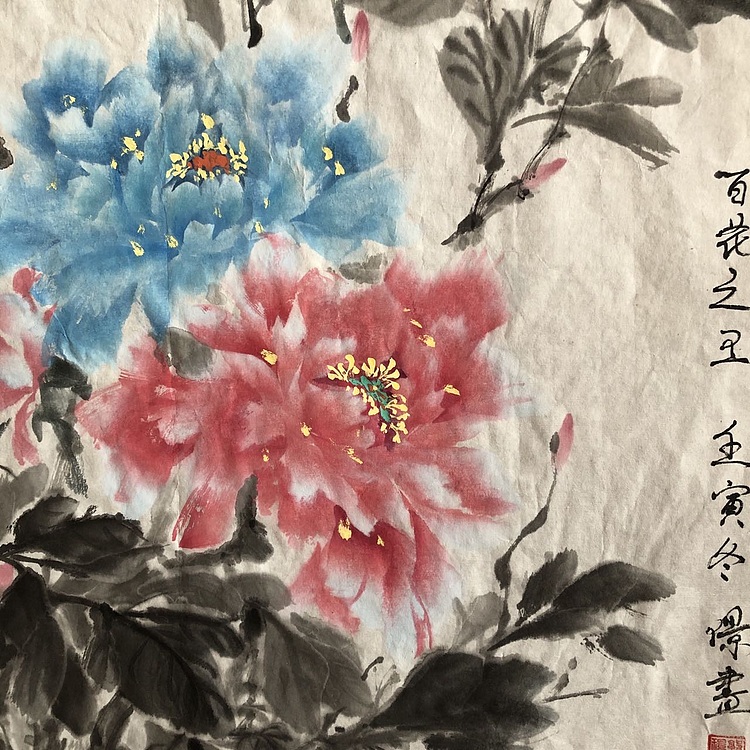 百花之王 壬寅冬 璟畫